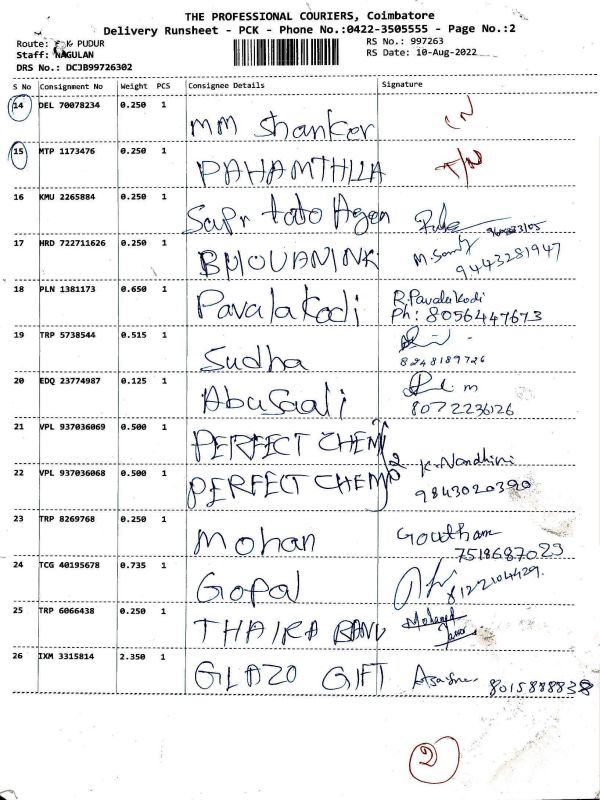 THE PROFESSIONAL COURIERS, Coimbatore
Delivery Runsheet - PCK - Phone No.:0422-3505555 - Page No.:2
Route: K PUDUR
RS No.: 997263
Staff: NAGULAN
RS Date: 10-Aug-2022
DRS No.: DCJB99726302
S No Consignment No Weight PCS Consignee Details Signature
14 DEL 70078234 0.250 1 MM Shanker
15 MTP 1173476 0.250 1 PAHAMTHLLA
16 KMU 2265884 0.250 1 Sapr toto Agen
17 HRD 722711626 0.250 1 BHOUANINK 9443281947
18 PLN 1381173 0.650 1 Pavalakodi R.Pavalakodi
Ph: 8056447673
19 TRP 5738544 0.515 1 Sudha 8248189726
20 EDQ 23774987 0.125 1 Abusaali 8072236126
21 VPL 937036069 0.500 1 PERFECT CHEM
22 VPL 937036068 0.500 1 PERFECT CHEM K.Nandhini
9843020390
23 TRP 8269768 0.250 1 Mohan Goutham
7518687023
24 TCG 40195678 0.735 1 Gopal 8122104429.
25 TRP 6066438 0.250 1 THAIRA BANU Mohamed
26 IXM 3315814 2.350 1 GLAZO GIFT 8015888838
2